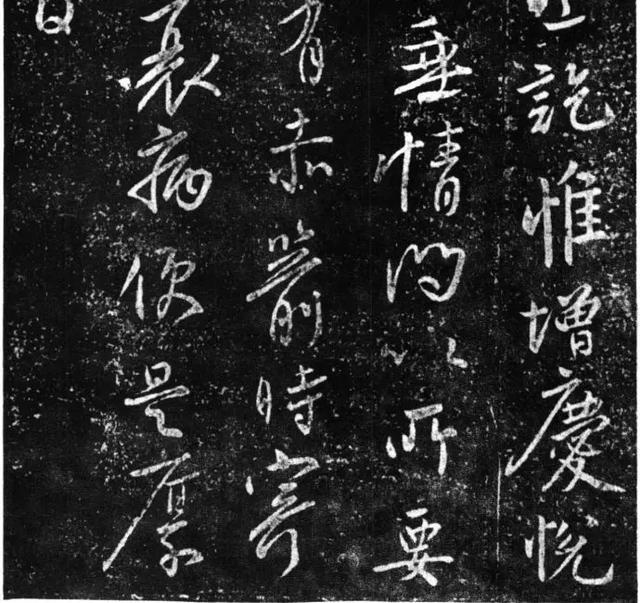 訖惟增慶悅
垂情問以所要
有赤箭時寄
衰病便是